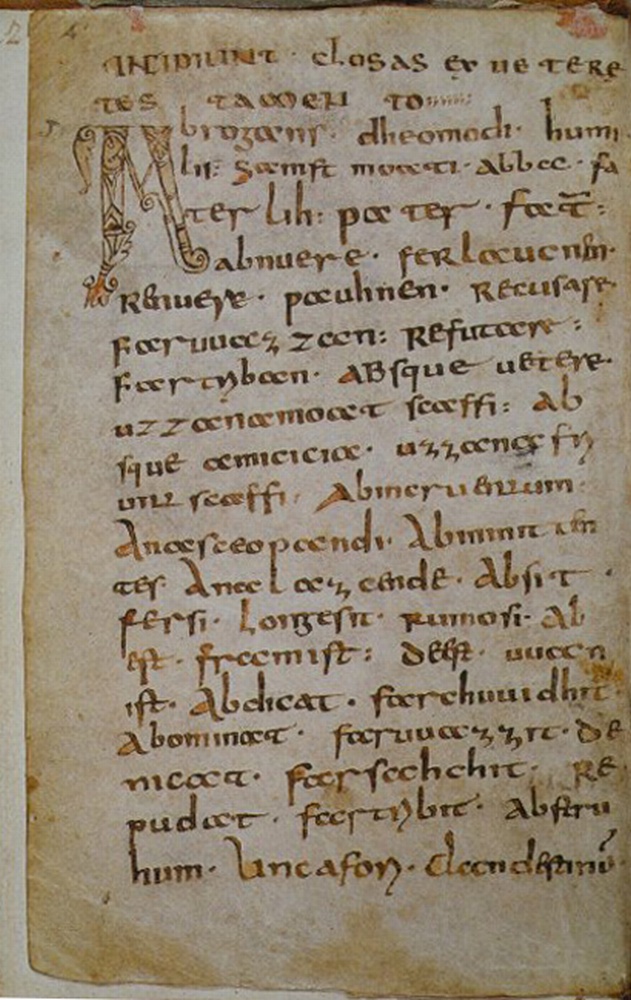 INCIPIUNT closas ex vetere
tes tamen to
Abrogans. dheomodi. humi
lis: samft moati. abbe. fa
ter lih: pater. fat̄:
abnuere. ferlaucnen.
Renuere. pauhnen. Recusare.
Faruuazzan: Refutare:
Fartriban. ABsque uetere.
uzzanamoat scaffi: Ab
sque amicicia. uzzana fri
unt scaffi. Abincruentum.
Anasceopandi. Abminit in
tes Anaslazende. Absit.
fersi. Longe sit. rumo si. Ab
est. framist: deest. uuan
ist. Abdicat. farchuuidhit.
Abominat. faruuazzit. de
nicat. farsahchit. Re
pudiat. fartribit. Abstru
hum. Uncafori. Clandestinū